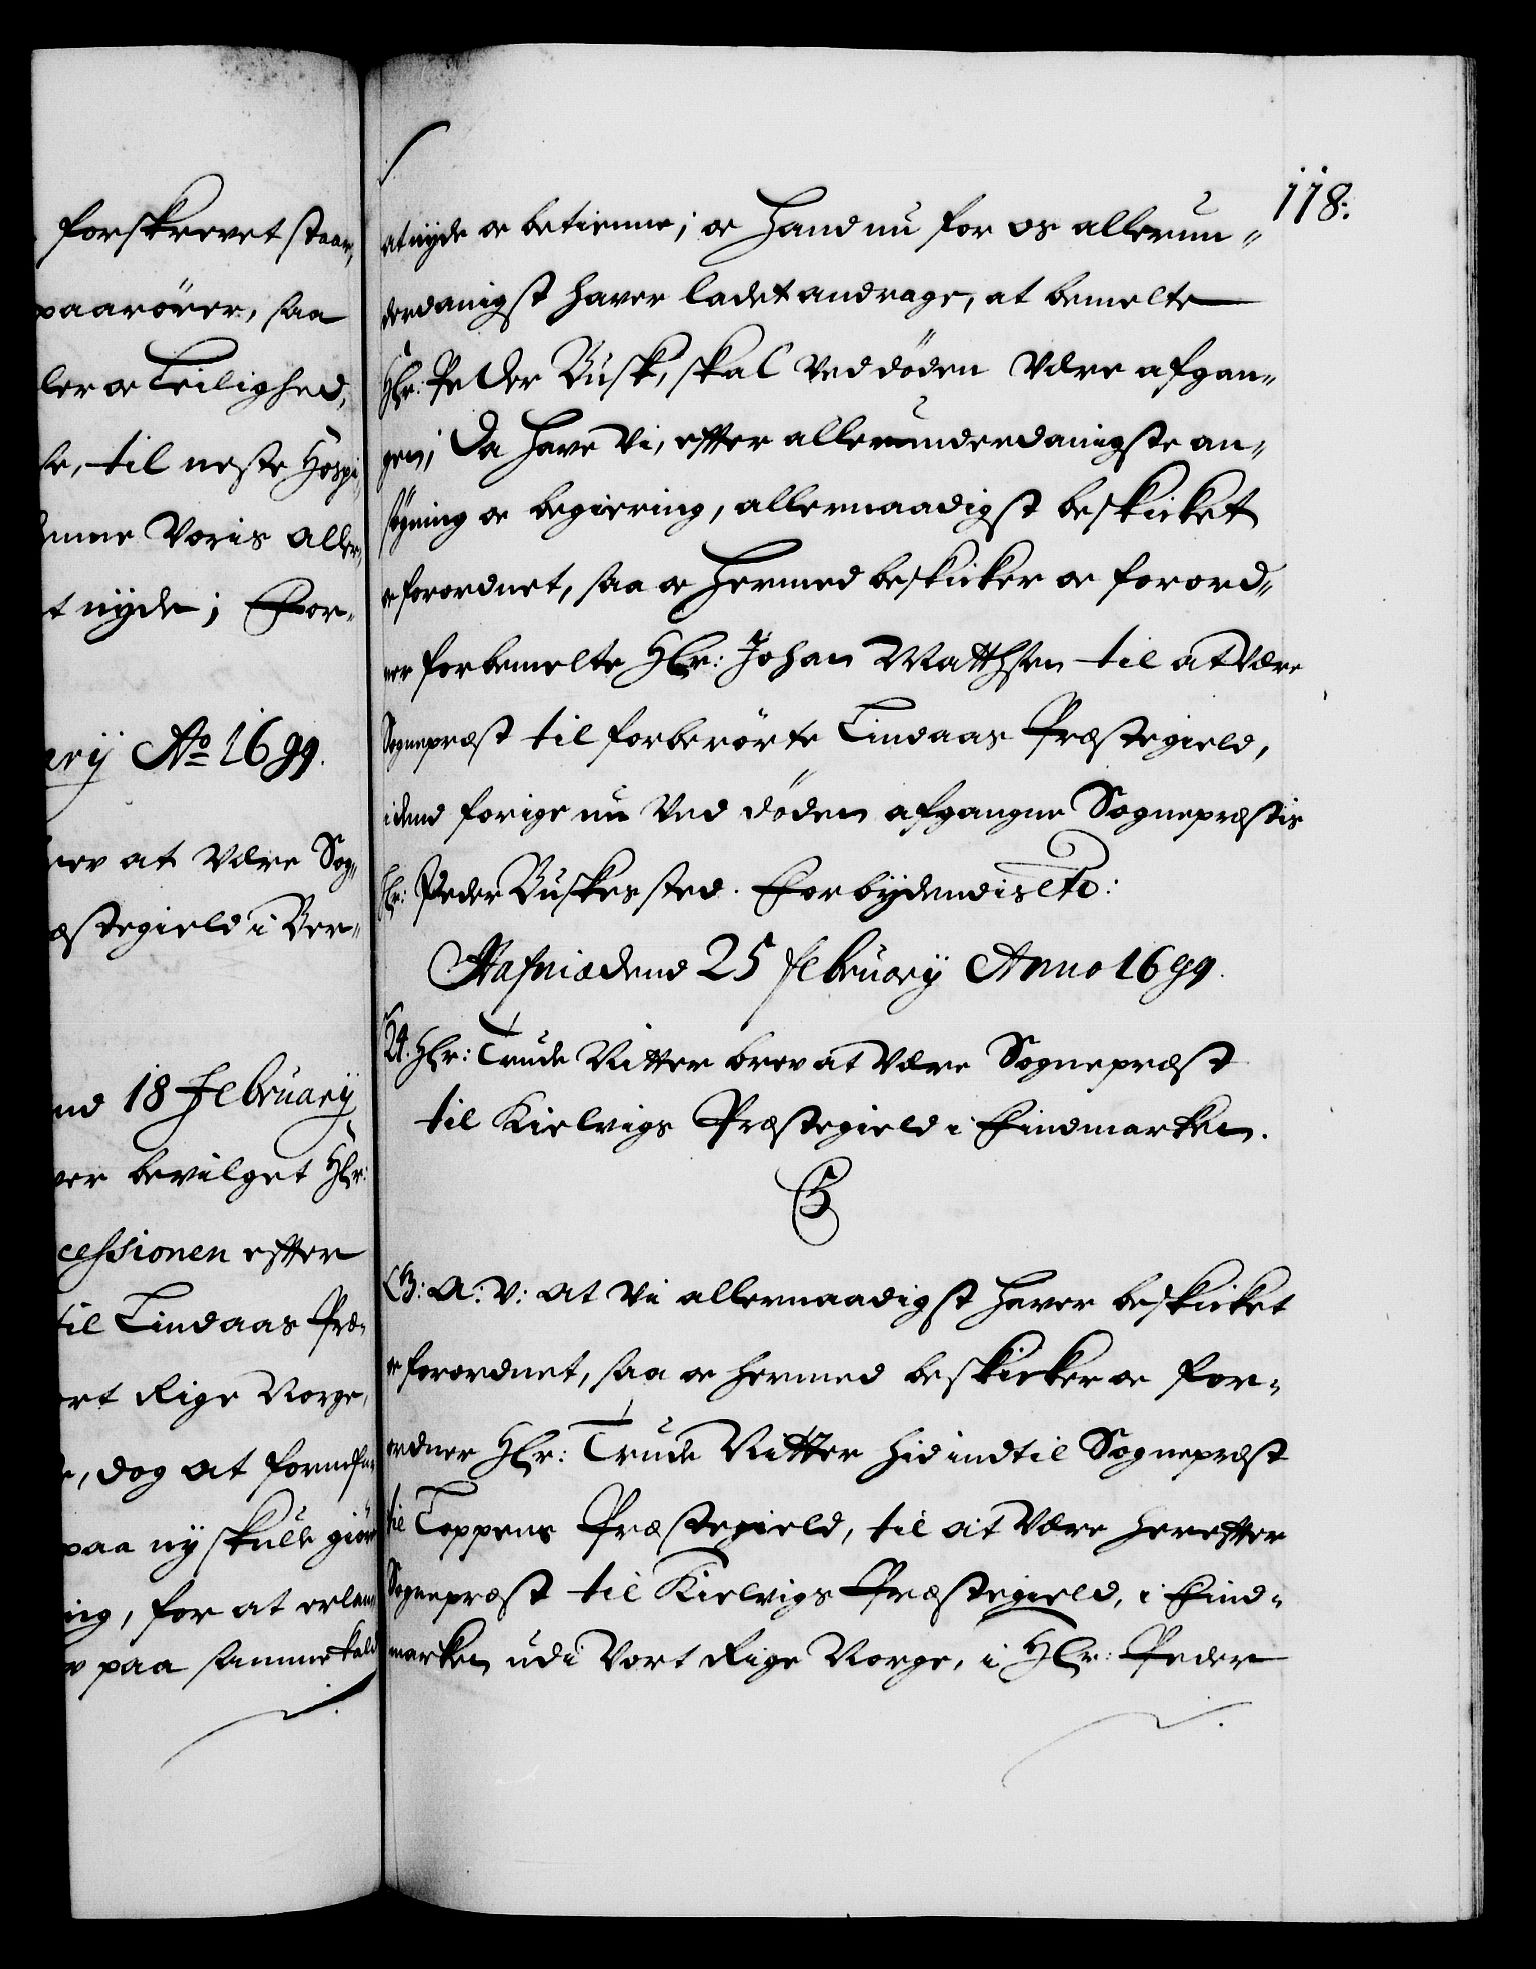 forskrevet staar,
paarörer, saa
ler oc Leilighed,
se, til neste Hospi
Voris aller,
t nyde; For-
arij Ao 1699.
brev at være Sog-
æstegield i Ber-
nd 18 February
ver bevilget Hr:
cessionen efter
til Lindaas Præ-
ort Rige Norge,
e, dog at
paa ny skulle giöre
ing, for at erlan
paa samme kald
118:
at nyde oc betienne; oc hand nu for os allerun-
derdanigst haver ladet andrage, at bemelte
Hr: Peder Busk, skal ved döden være afgan-
gen; Da have Vi, efter allerunderdanigste an-
søgning oc begiering, allernaadigst beskicket
oc forordnet, saa oc hermed beskicker oc forord-
ner forbemelte Hr: Johan Matthsen til at være
Sognepræst til forberörte Lindaas Præstegield,
i dend forige nu ved döden afgangne Sognepræstis
Hr: Peder Buskes sted. Forbydendis etc:
Hafniæ dend 25 February Anno 1699.
24. Hr: Trude Nitter brev at være Sognepræst
til Kielvigs Præstegield i Findmarken.
C5
C5: A: V: at Vi allernaadigst haver beskicket
oc forordnet, saa oc hermed beskicker oc for-
ordner Hr: Trude Nitter hid indtil Sognepræst
til Loppens Præstegield, til at være herefter
Sognepræst til Kielvigs Præstegield, i Find-
marken udi Vort Rige Norge, i Hr: Peder